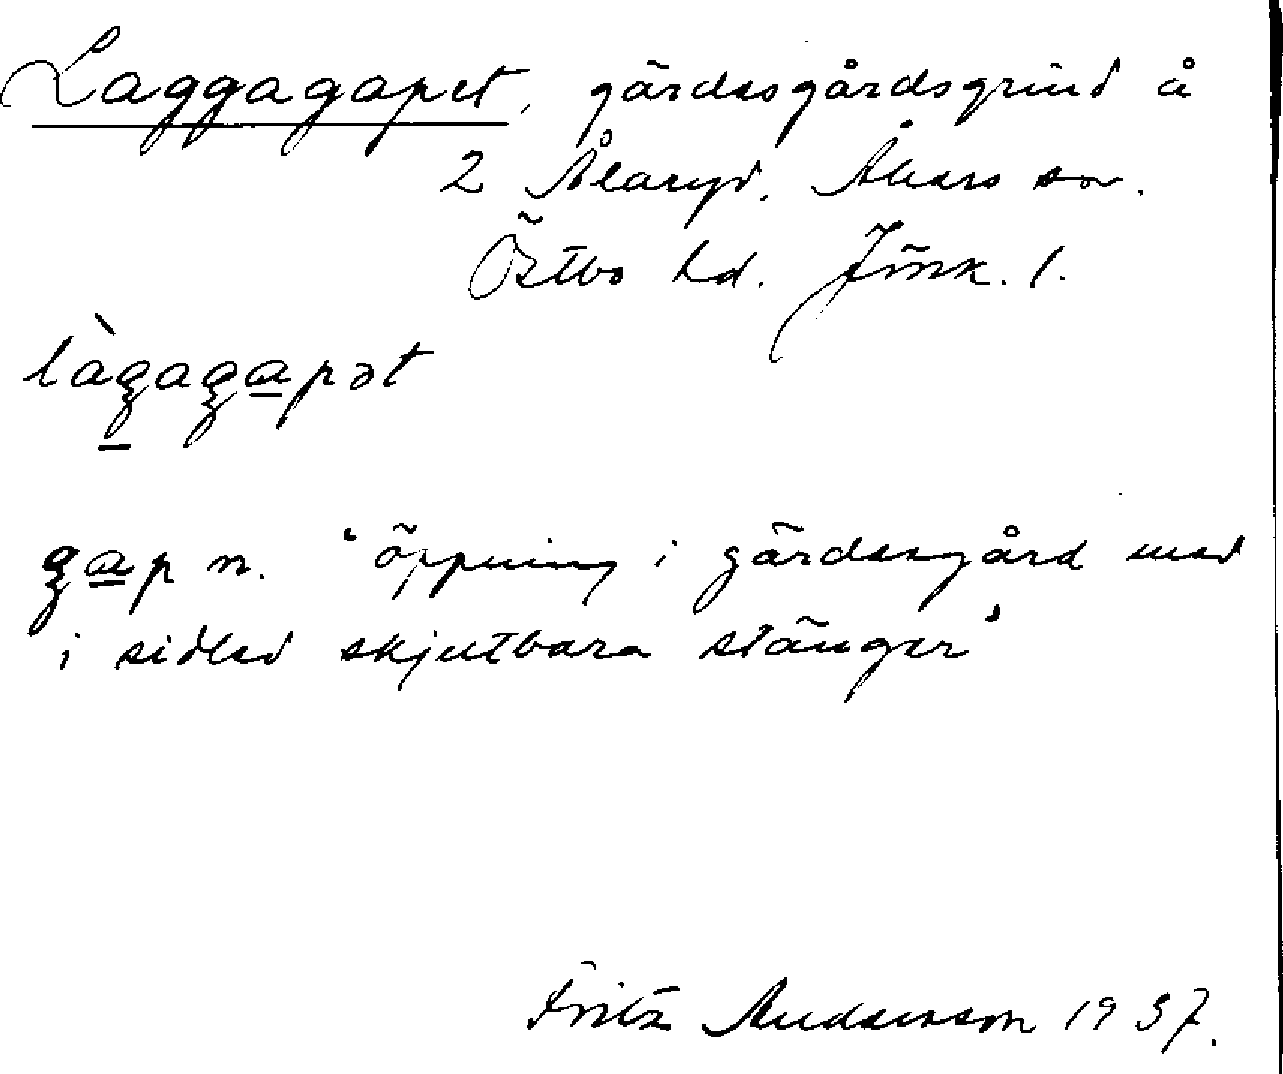 Laggagapet, gärdesgårdsgrind å
2 Ålaryd. Åkers sn.
Östbo hd. Jönk. l.
làgagapət
gap n. "öppning i gärdesgård med
i sidled skjutbara stänger"
Fritz Andersson 1937.